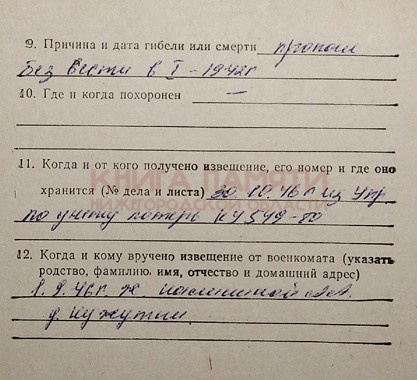 9. Причина и дата гибели или смерти пропал
без вести в I-1942г
10. Где и когда похоронен —
КНИГА ПАМЯТИ
НИЖЕГОРОДСКОЙ ОБЛАСТИ
11. Когда и от кого получено извещение, его номер и где оно
хранится (№ дела и листа) 10.46г из Упр
по учету потерь
12. Когда и кому вручено извещение от военкомата (указать
родство, фамилию, имя, отчество и домашний адрес)
46г. ж.
д.